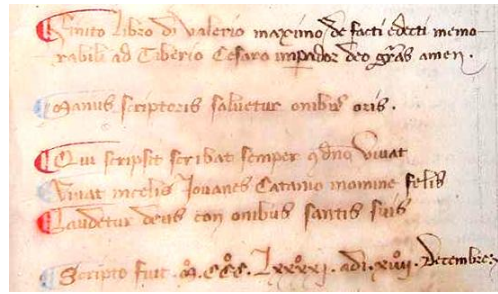 Finito libro di Valerio maximo de facti e decti memo
rabili ad Tiberio Cesaro impador deo gras amen.
Manus scriptoris salvetur onibus oris.
Qui scripsit scribat semper cu dno vivat
Vivat in celis Iovanes Cataneo in nomine felis
Laudetur deus con onibus santis suis
Scripto fuit .M.CCC. Lxxxxi. adi .xviiii. Decembre: